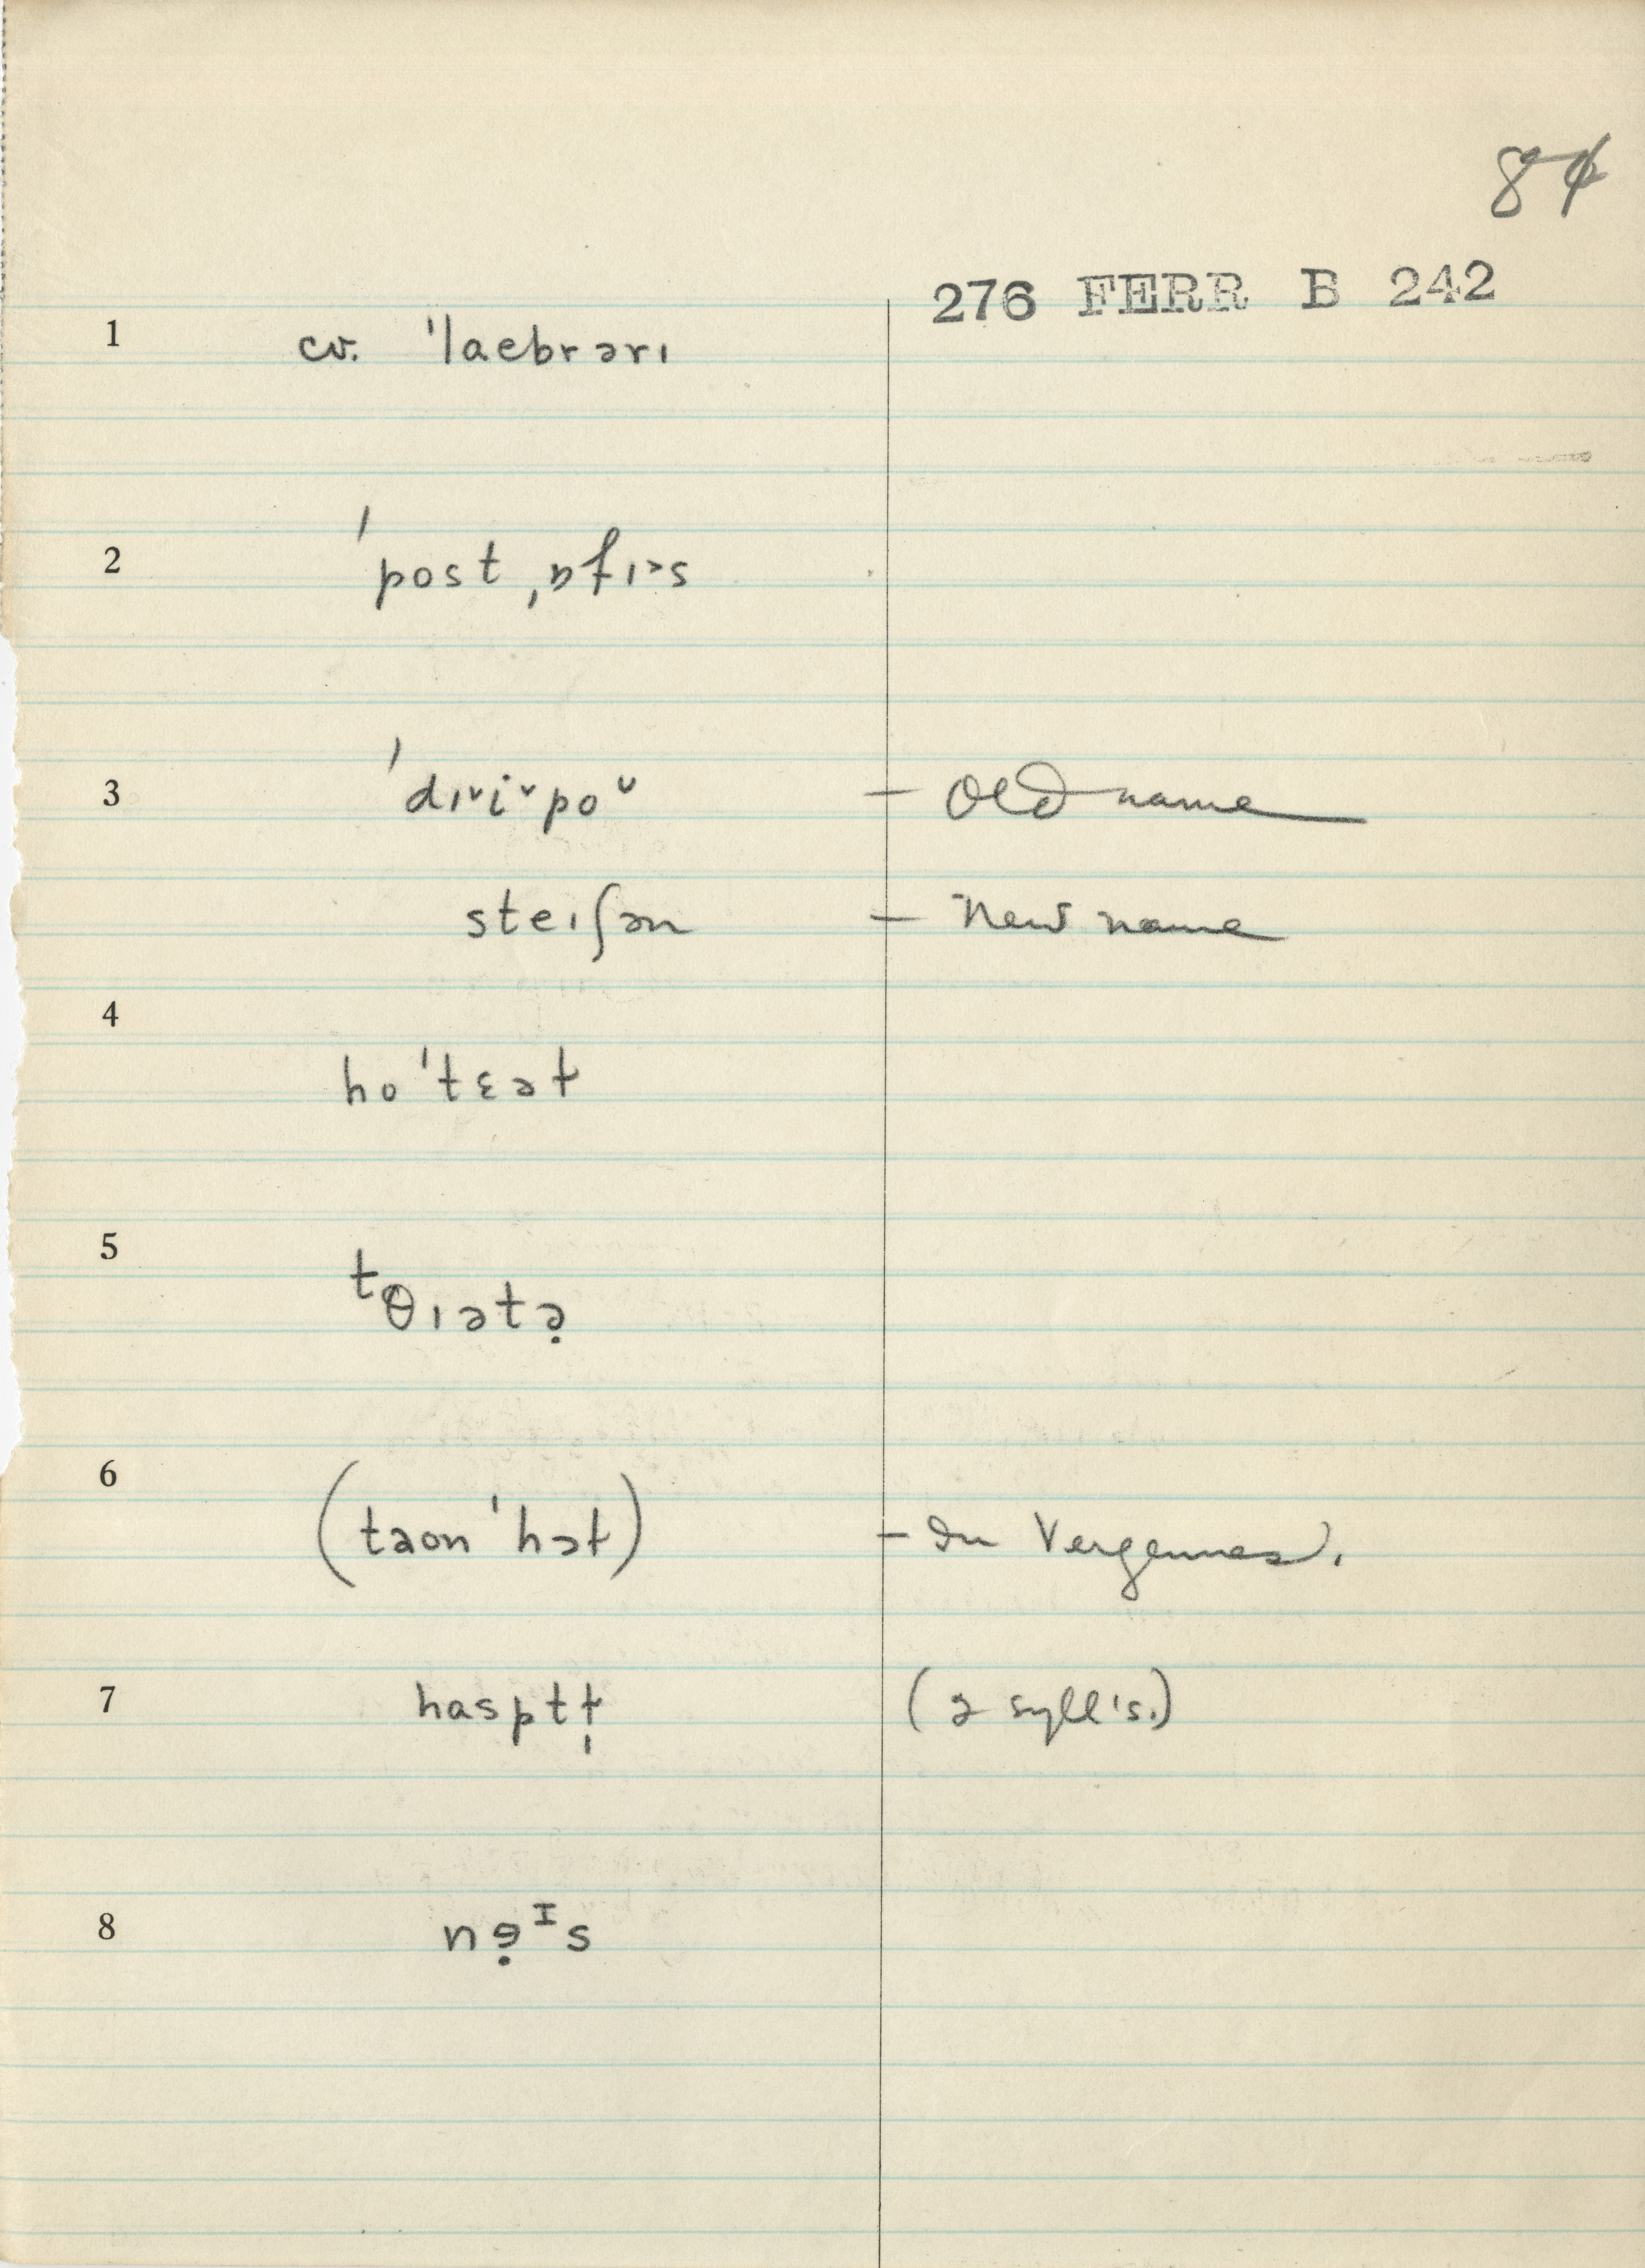 84
276 FERR B 242
1 cv. ˈlaebrərɪ
2 ˈpost ˌɒfɪ˃s
3 ˈdɪ˅i˅po˅ – Old name
steɪʃən – New name
4 hoˈtɛəɫ
5 ᵗθɪətə̣
6 (taonˈhɔɫ) – In Vergennes.
7 hasptɫ̩ (2 syll's.)
8 nɘ̣ᴵs